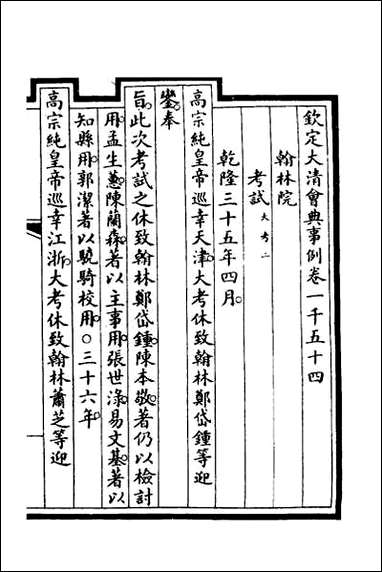 欽定大清會典事例卷一千五十四
翰林院
考試大考二
乾隆三十五年四月。
高宗純皇帝巡幸天津。大考休致翰林鄭岱鍾等迎
鑾。奉
旨。此次考試之休致翰林鄭岱鍾。陳本敬。著仍以檢討
用。孟生蕙。陳蘭森。著以主事用。張世淥。易文基。著以
知縣用。郭潔。著以驍騎校用。○三十六年。
高宗純皇帝巡幸江浙。大考休致翰林蕭芝等迎